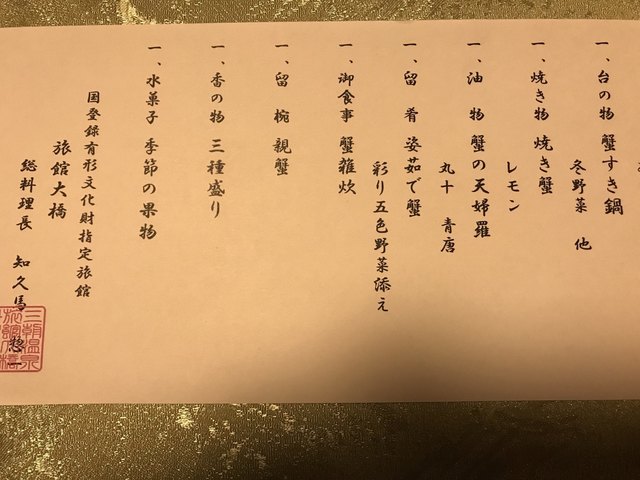 一、台の物 蟹すき鍋
冬野菜 他
一、焼き物 焼き蟹
レモン
一、油 物 蟹の天婦羅
丸十 青唐
一、留 肴 姿茹で蟹
彩り五色野菜添え
一、御食事 蟹雑炊
一、留 椀 親蟹
一、香の物 三種盛り
一、水菓子 季節の果物
国登録有形文化財指定旅館
旅館大橋
総料理長 知久馬 惣一
三朝温泉
旅館大橋